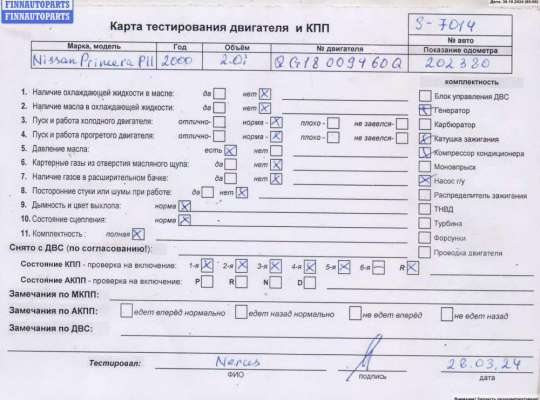 FINNAUTOPARTS
FINNAUTOPARTS
Карта тестирования двигателя и КПП
S-7014
№ авто
Марка, модель Год Объём № двигателя Показание одометра
Nissan Primera P11 2000 2.0i QG18 009460Q 202380
комплектность
1. Наличие охлаждающей жидкости в масле: да нет
2. Наличие масла в охлаждающей жидкости: да нет
3. Пуск и работа холодного двигателя: отлично- норма - плохо - не завелся-
4. Пуск и работа прогретого двигателя: отлично- норма - плохо - не завелся-
5 Давление масла: есть нет
6. Картерные газы из отверстия масляного щупа: да нет
7. Наличие газов в расширительном бачке: да нет
8. Посторонние стуки или шумы при работе: да нет
9. Дымность и цвет выхлопа: норма
10. Состояние сцепления: норма
11. Комплектность : полная
Блок управления ДВС
Генератор
Карбюратор
Катушка зажигания
Компрессор кондиционера
Моновпрыск
Насос г/у
Распределитель зажигания
ТНВД
Турбина
Форсунки
Проводка двигателя
Снято с ДВС (по согласованию!):
Состояние КПП - проверка на включение: 1-я 2-я 3-я 4-я 5-я 6-я R
Состояние АКПП - проверка на включение: P R N D
Замечания по МКПП:
Замечания по АКПП: едет вперёд нормально едет назад нормально не едет вперёд не едет назад
Замечания по ДВС:
Тестировал: Nerus 28.03.24
ФИО подпись дата